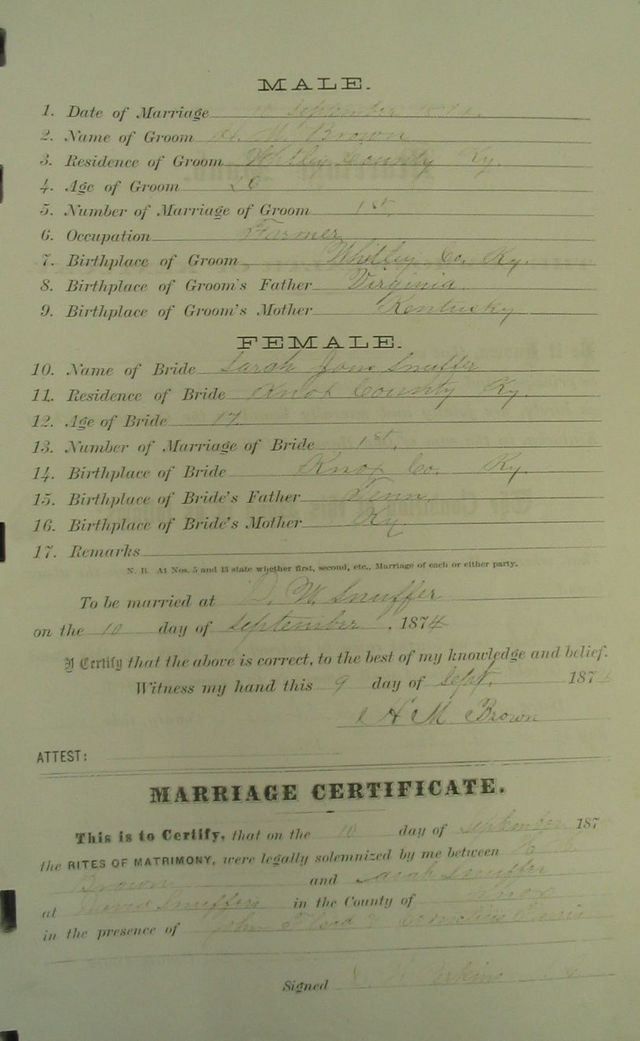 MALE.
1. Date of Marriage 10 September 1874
2. Name of Groom H. M. Brown
3. Residence of Groom Whitley County Ky.
4. Age of Groom
5. Number of Marriage of Groom 1st.
6. Occupation Farmer
7. Birthplace of Groom Whitley Co. Ky.
8. Birthplace of Groom's Father Virginia
9. Birthplace of Groom's Mother Kentucky
FEMALE.
10. Name of Bride Sarah Jane Snuffer
11. Residence of Bride Knox County Ky.
12. Age of Bride 17
13. Number of Marriage of Bride 1st.
14. Birthplace of Bride Knox Co. Ky.
15. Birthplace of Bride's Father Tenn
16. Birthplace of Bride's Mother Ky
17. Remarks
N. B. At Nos. 5 and 13 state whether first, second, etc., Marriage of each or either party.
To be married at D. W. Snuffer
on the 10 day of September, 1874
I Certify that the above is correct, to the best of my knowledge and belief.
Witness my hand this 9 day of Sept. 1874
H M Brown
ATTEST:
MARRIAGE CERTIFICATE.
This is to Certify, that on the 10 day of September 187
the RITES OF MATRIMONY, were legally solemnized by me between
Brown and Sarah Snuffer
at Snuffers in the County of Knox
in the presence of John
Signed